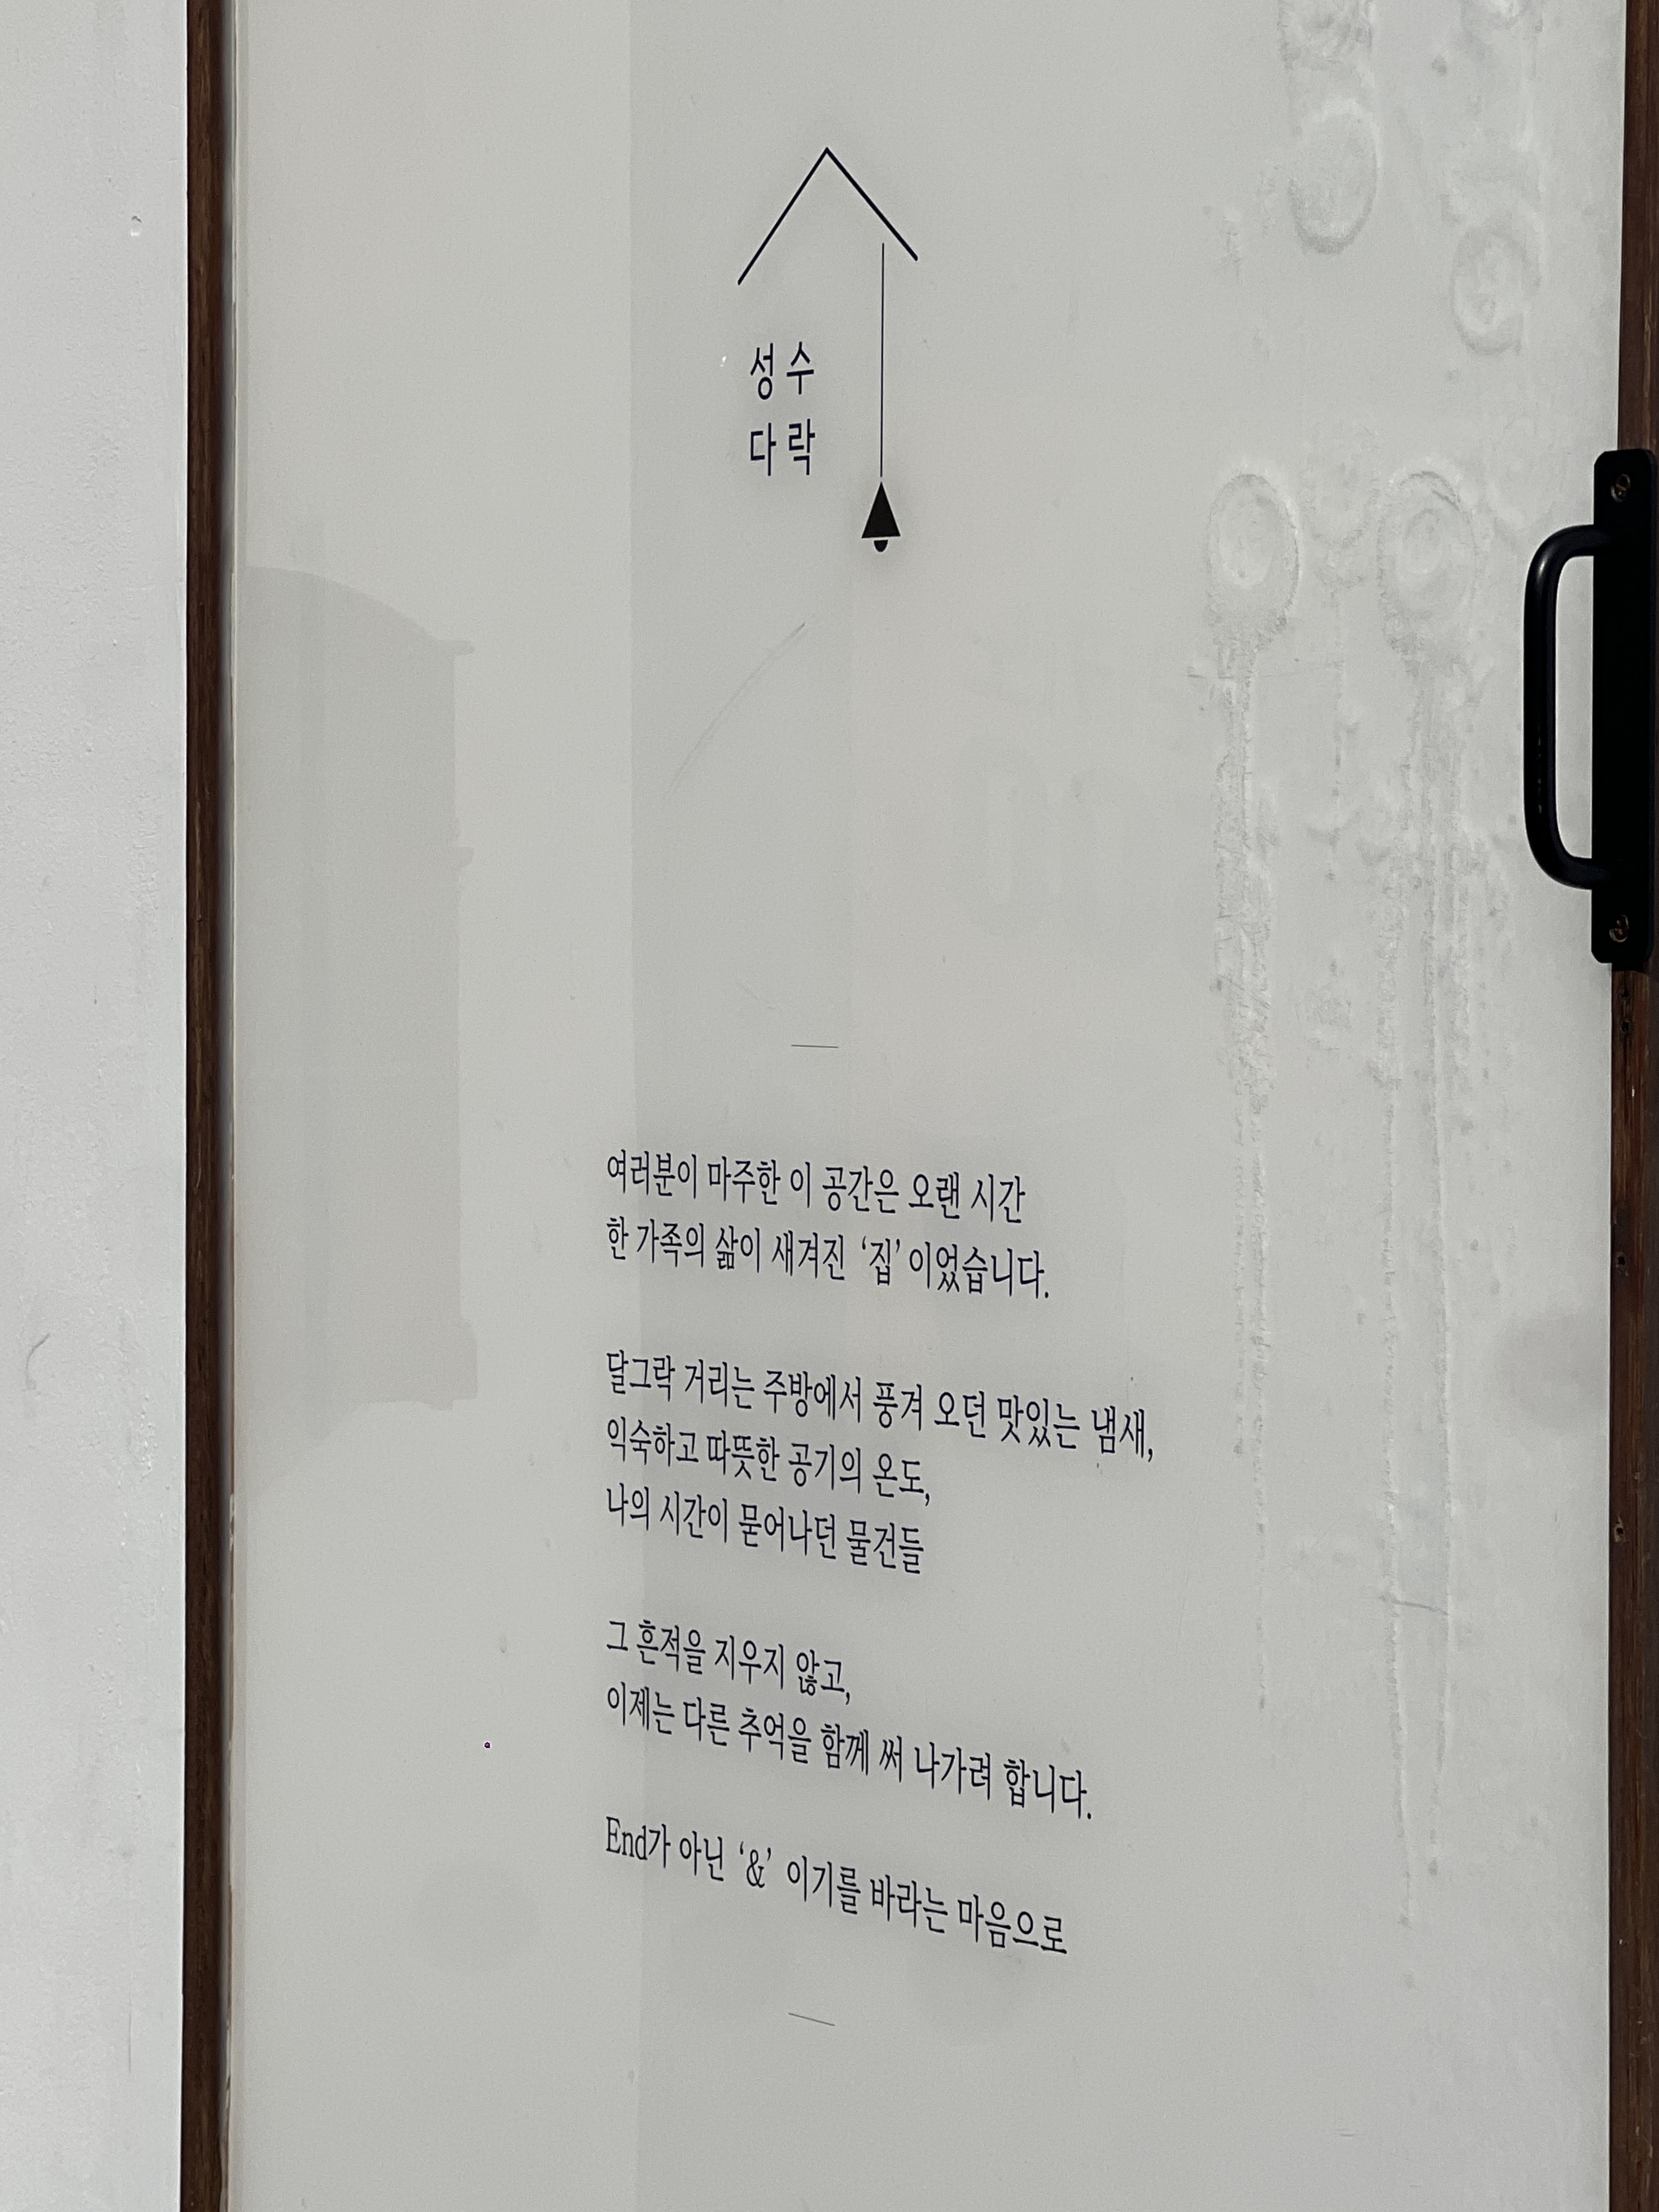 성수
다락
여러분이 마주한 이 공간은 오랜 시간
한 가족의 삶이 새겨진 ‘집’ 이었습니다.
달그락 거리는 주방에서 풍겨 오던 맛있는 냄새,
익숙하고 따뜻한 공기의 온도,
나의 시간이 묻어나던 물건들
그 흔적을 지우지 않고,
이제는 다른 추억을 함께 써 나가려 합니다.
End가 아닌 ‘&’ 이기를 바라는 마음으로